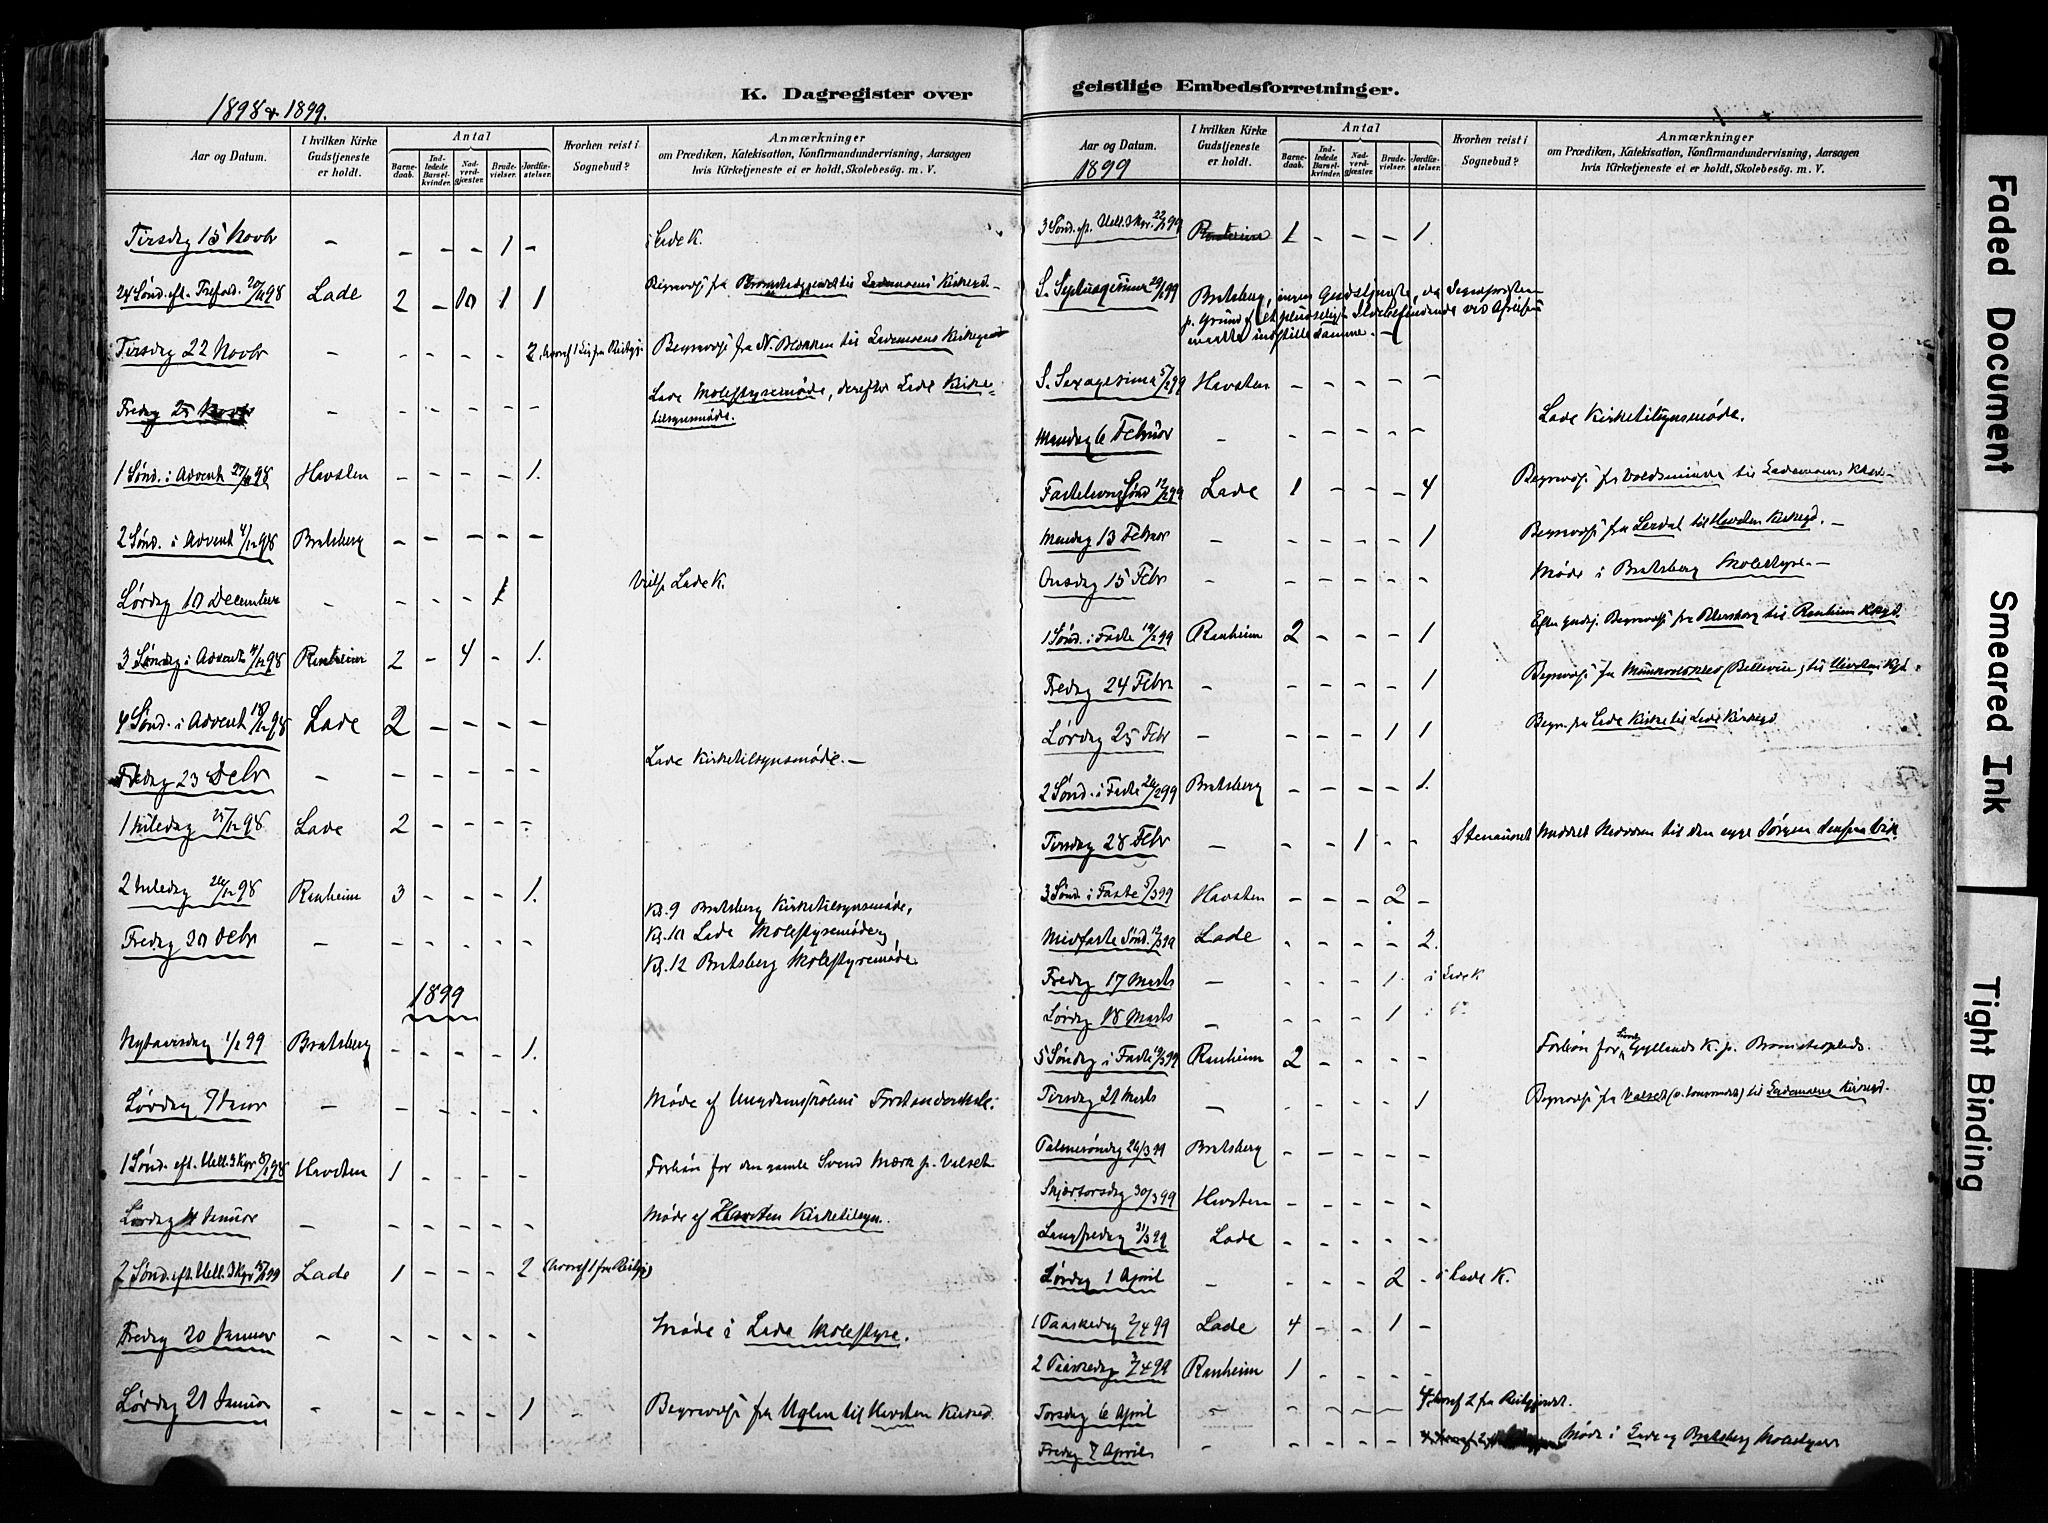 K. Dagregister over
1898 & 1899.
Aar og Datum.
I hvilken Kirke Gudstjeneste er holdt.
Antal
Barnedaab.
Indledede Barselkvinder.
Nadverdgjæster.
Brudevielser.
Jordfæstelser.
Hvorhen reist i Sognebud?
Anmærkninger
om Prædiken, Katekisation, Konfirmandundervisning, Aarsagen
hvis Kirketjeneste ei er holdt, Skolebesøg. m. V.
Tirsdag 15 Novbr - - - - 1 - i Lade K.
24 Sønd. eft. Trefold. 20/11 98 Lade 2 - 10 1 1 Begravelse fra til Lademoens Kirkegd
Tirsdag 22 Novbr - - - - - 2, hvoraf 1 Begravelse fra N. til Lademoens Kirkegd
Fredag 25 Novbr - - - - - - Lade Skolestyremøde, derefter Lade Kirke-
tilsynsmøde.
1 Sønd. i Advent 27/11 98 Havsten - - - - 1.
2 Sønd. i Advent 4/12 98 Bratsberg - - - - -
Lørdag 10 December - - - - 1 Lade K.
3 Søndag i Advent 11/12 98 Ranheim 2 - 4 - 1.
4 Sønd. i Advent 18/12 98 Lade 2 - - - -
Fredag 23 Debr - - - - - - Lade Kirketilsynsmøde. -
1 Juledag 25/12 98 Lade 2 - - - -
2 Juledag 26/12 98 Ranheim 3 - - - 1.
Fredag 30 Debr - - - - - - Kl. 9 Bratsberg Kirketilsynsmøde,
Kl. 10 Lade Skolestyremøde,
Kl. 12 Bratsberg Skolestyremøde.
1899
Nytaarsdag 1/1 99 Bratsberg - - - - 1.
Lørdag 7 Januar - - - - - - Møde af Ungdomsskolens Forstanderskab.
1 Sønd. eft. Hell. 3 Kgr 8/1 98 Havsten 1 - - - - Forbøn for den gamle Svend Mærk p. Valset
Lørdag 14 Januar - - - - - - Møde af Havsten Kirketilsyn.
2 Sønd. eft. Hell. 3 Kgr 15/1 99 Lade 1 - - - 2 (hvoraf 1 fra Reitgj)
Fredag 20 Januar - - - - - - Møde i Lade Skolestyre.
Lørdag 21 Januar - - - - - 1 - Begravelse fra Uglen til Havsten Kirkegd.
geistlige Embedsforretninger.
Aar og Datum.
1899
I hvilken Kirke Gudstjeneste er holdt.
Antal
Barnedaab.
Indledede Barselkvinder.
Nadverdgjæster.
Brudevielser.
Jordfæstelser.
Hvorhen reist i Sognebud?
Anmærkninger
om Prædiken, Katekisation, Konfirmandundervisning, Aarsagen
hvis Kirketjeneste ei er holdt, Skolebesøg. m. V.
3 Sønd. ef. Hell. 3 Kgr. 22/1 99 Ranheim 1 - - - 1.
S. Septuagesima 29/1 99 Bratsberg, ingen Gudstjeneste, da Sognepresten
p. Grund af et pludseligt Ildebefindende ved Afreisen
maatte indstille samme. -
S. Sexagesima 5/2 99 Havsten - - - - -
Mandag 6 Februar - - - - - - Lade Kirketilsynsmøde.
Fastelavns Sønd 12/2 99 Lade 1 - - - 4 Begravelse fra Voldsminde til Lademoens Kkgd -
Mandag 13 Februar - - - - - 1 Begravelse fra Lerdal til Havsten Kirkegd. -
Onsdag 15 Febr - - - - - - Møde i Bratsberg Skolestyre. -
1 Sønd. i Faste 19/2 99 Ranheim 2 - - - 1 Efter Gudstj. Begravelse fra til Ranheim Kkgd.
Fredag 24 Febr - - - - - 1 Begravelse fra Munkvoldsned (Bellevue) til Havsten Kgd.
Lørdag 25 Febr - - - - 1 1 Begr. fra Lade Kirke til Lade Kirkegd
2 Sønd. i Faste 26/2 99 Bratsberg - - - - 1.
Tirsdag 28 Febr - - - 1 - - Stenaunet Meddelt Nadveren til den syge Jørgen
3 Sønd i Faste 5/3 99 Havsten - - - 2 -
Midfaste Sønd. 12/3 99 Lade - - - - 2.
Fredag 17 Marts - - - - 1. - i Lade K
Lørdag 18 Marts - - - - 1 -
5 Søndag i Faste 19/3 99 Ranheim 2 - - - - Forbøn for Gyllands K. p.
Tirsdag 21 Marts - - - - - 1 Begravelse fra Valset til Lademoens Kirkegd.
Palmesøndag 26/3 99 Bratsberg - - - - -
Skjærtorsdag 30/3 99 Havsten - - - - -
Langfredag 31/3 99 Lade - - - - -
Lørdag 1 April - - - - 2 - i Lade K.
1 Paaskedag 2/4 99 Lade 4 - - 1 -
2 Paaskedag 3/4 99 Ranheim 1 - - - -
Torsdag 6 April - - - - - 4 hvoraf 2 fra Reitgjerdet.
Fredag 7 April - - - - - Møde i Lade og Bratsberg Skolestyrer
Faded Document
Smeared Ink
Tight Binding